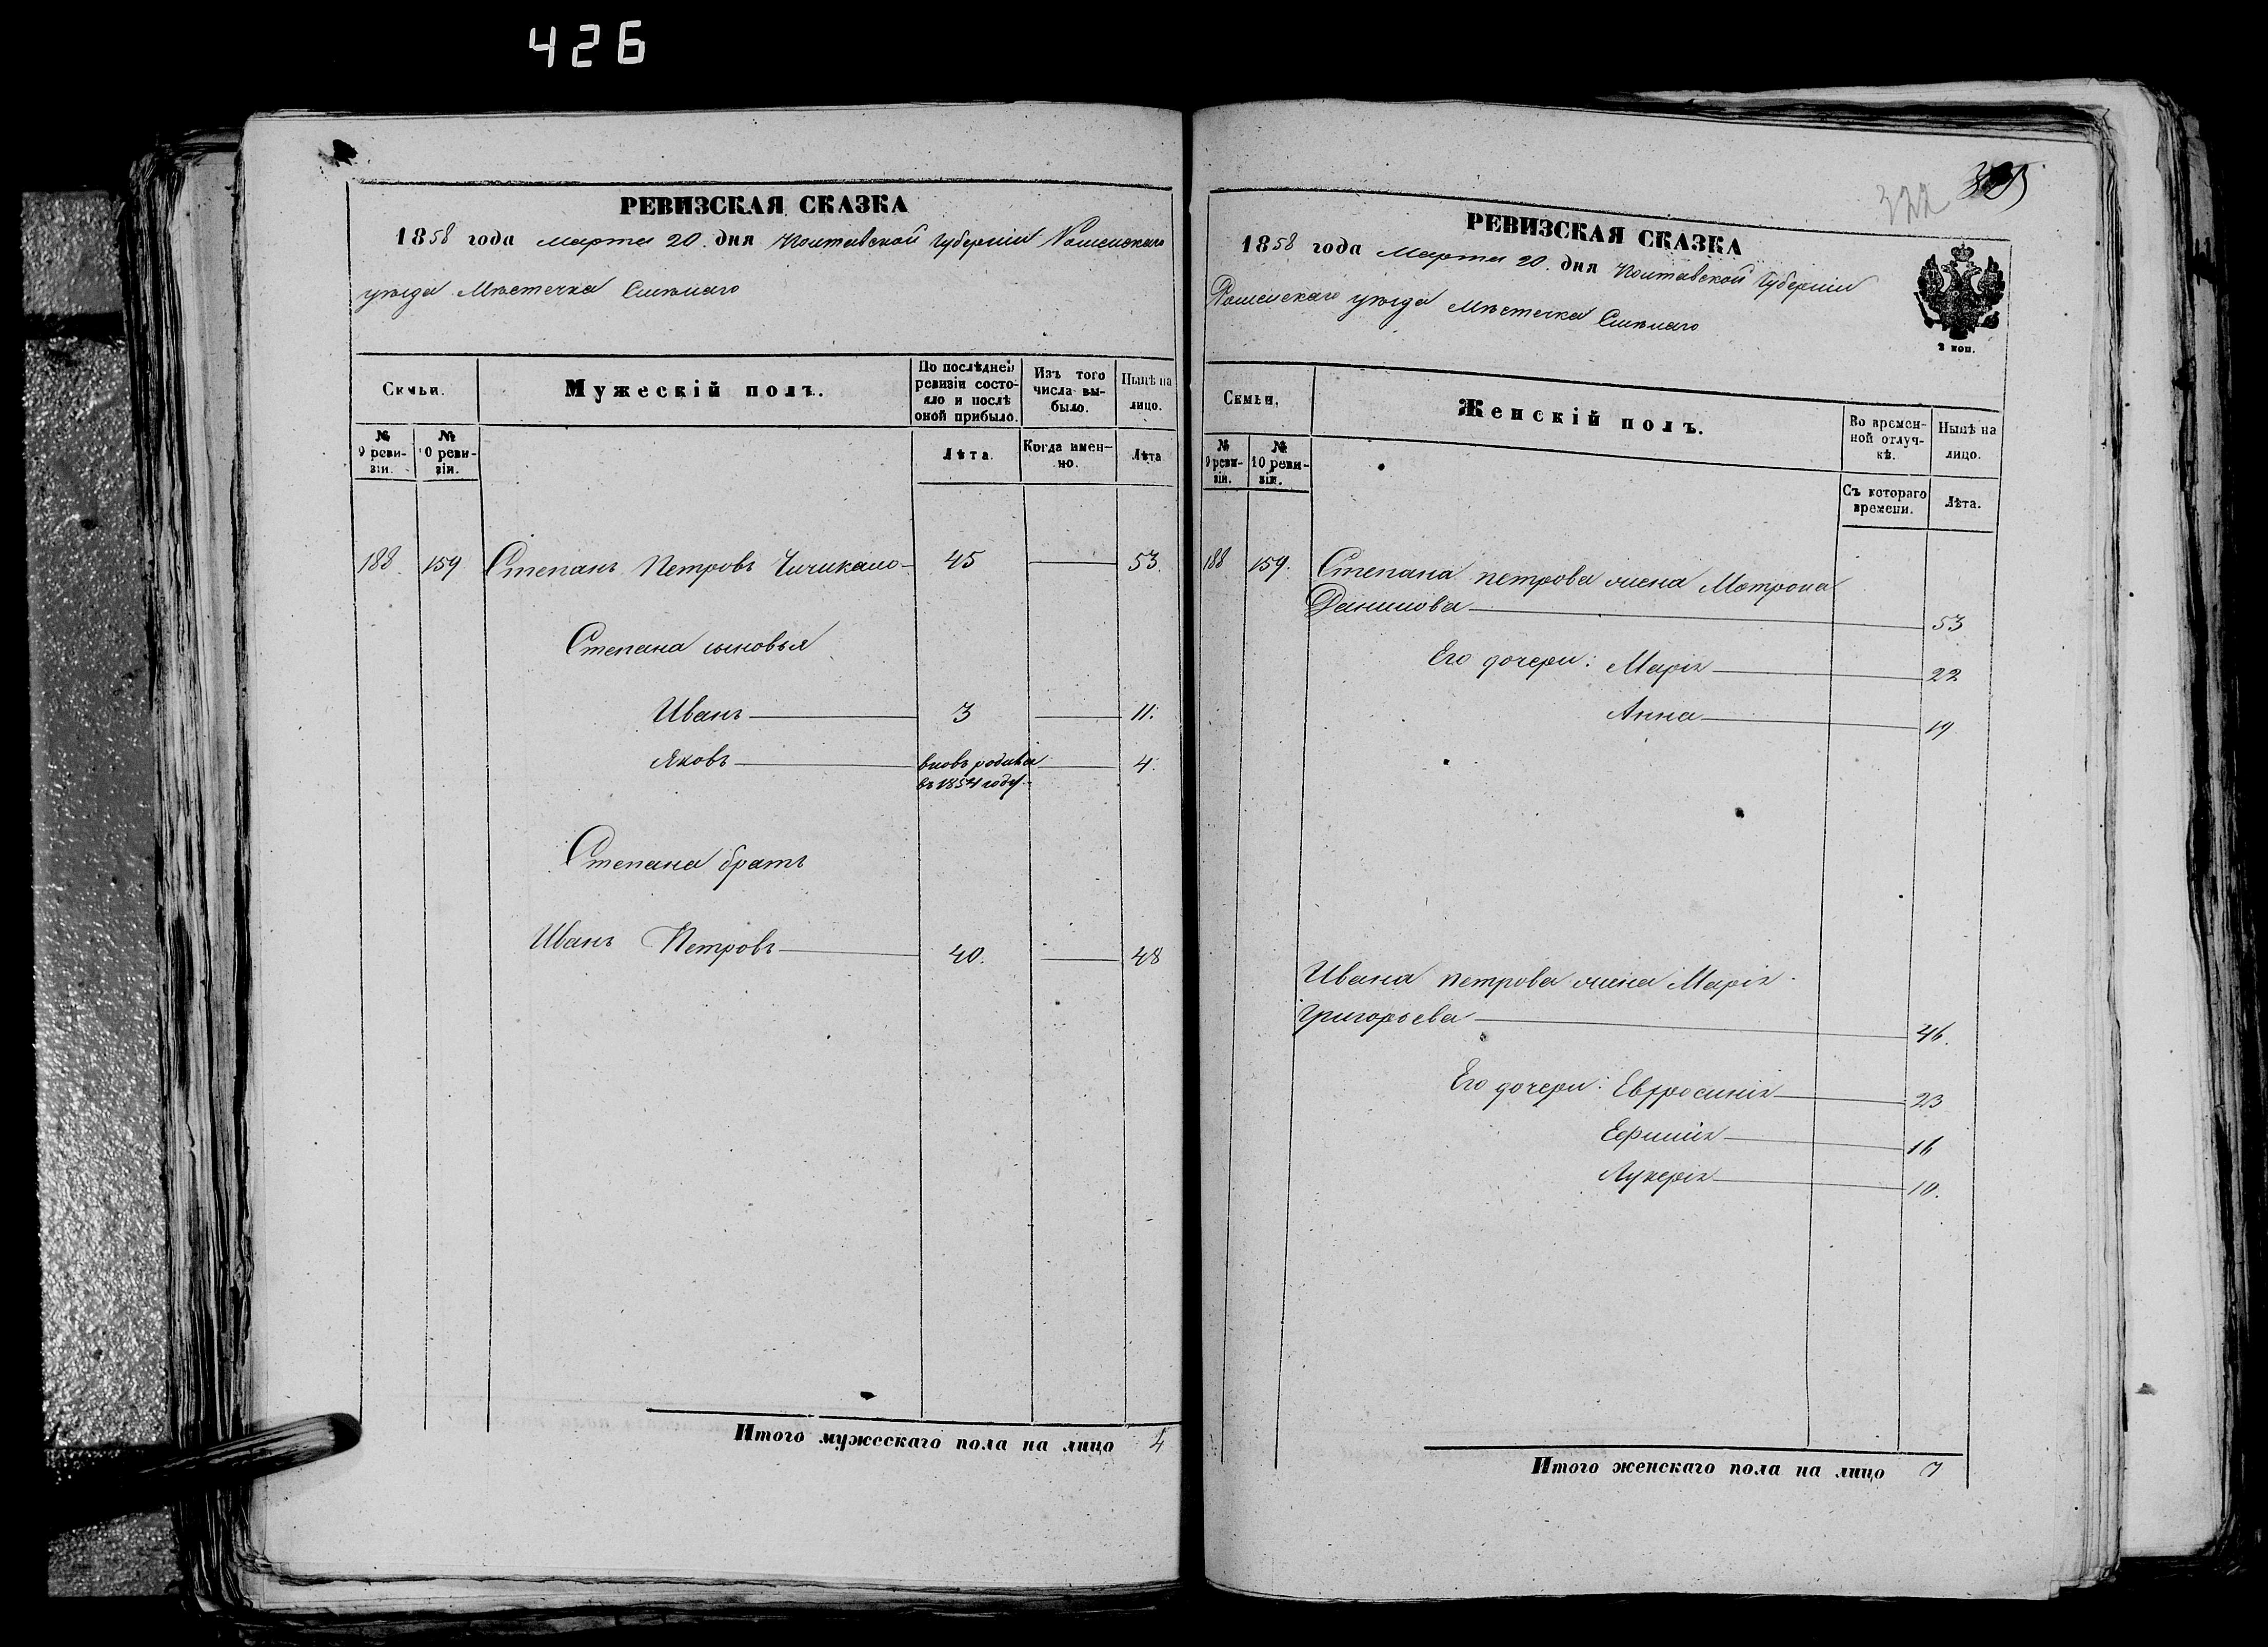 426
РЕВИЗСКАЯ СКАЗКА
1858 года марта 20. дня Полтавской Губерніи Роменскаго
уѣзда Мѣстечка Смѣлаго
Семьи.
Мужескій полъ.
По послѣдней ревизіи состояло и послѣ оной прибыло.
Изъ того числа выбыло.
Нынѣ на лицо.
№ 9 ревизіи.
№ 10 ревизіи.
Лѣта.
Когда именно.
Лѣта
188. 159 Степанъ Петровъ Чичикало 45 53.
Степана сыновья
Иванъ 3 11.
Яковъ вновь родился 4.
въ 1854 году
Степана братъ
Иванъ Петровъ 40. 48
Итого мужескаго пола на лицо 4
322
РЕВИЗСКАЯ СКАЗКА
1858 года Марта 20. дня Полтавской Губерніи
Роменскаго уѣзда Мѣстечка Смѣлаго
2 коп.
Семьи.
Женскій полъ.
Во временной отлучкѣ.
Нынѣ на лицо.
№ 9 ревизіи.
№ 10 ревизіи.
Съ котораго времени.
Лѣта.
188 159. Степана петрова жена Мотрона
Данилова 53
Его дочери: Марія 22
Анна 19
Ивана петрова жена Марія
Григорьева 46.
Его дочери: Евфросинія 23
Ефимія 16
Лукерія 10.
Итого женскаго пола на лицо 7